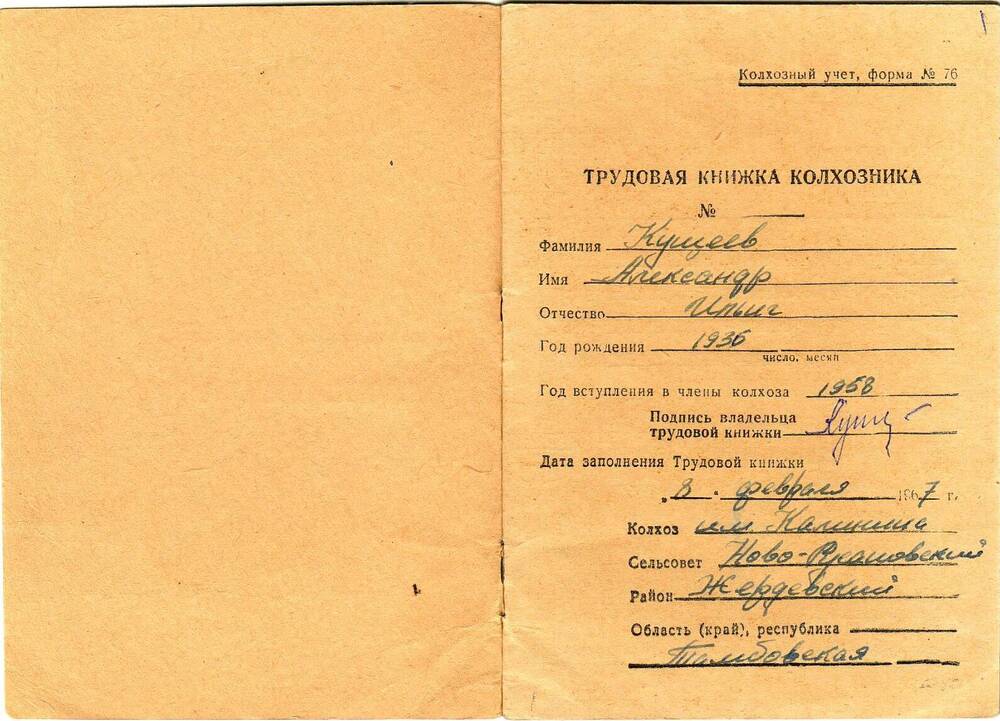 Колхозный учет, форма № 76
ТРУДОВАЯ КНИЖКА КОЛХОЗНИКА
№
Фамилия Кущеев
Имя Александр
Отчество Ильич
Год рождения 1936
число, месяц
Год вступления в члены колхоза 1958
Подпись владельца
трудовой книжки
Дата заполнения Трудовой книжки
„ 8 " февраля 1967 г.
Колхоз им. Калинина
Сельсовет
Район Жердевский
Область (край), республика
Тамбовская